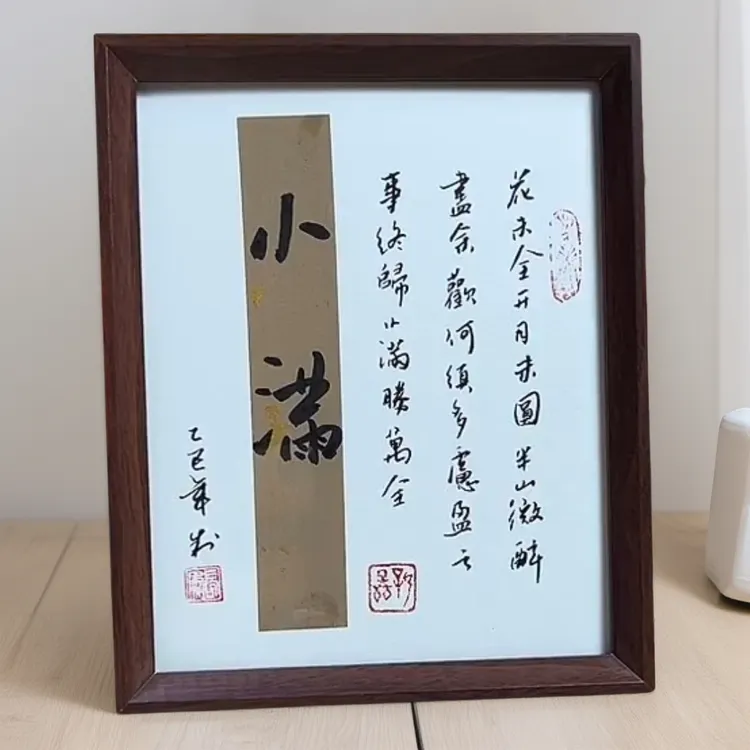 花未全开月未圓半山微醉
盡余歡何須多慮盈亏
事終歸小满勝萬全
小满
乙巳年